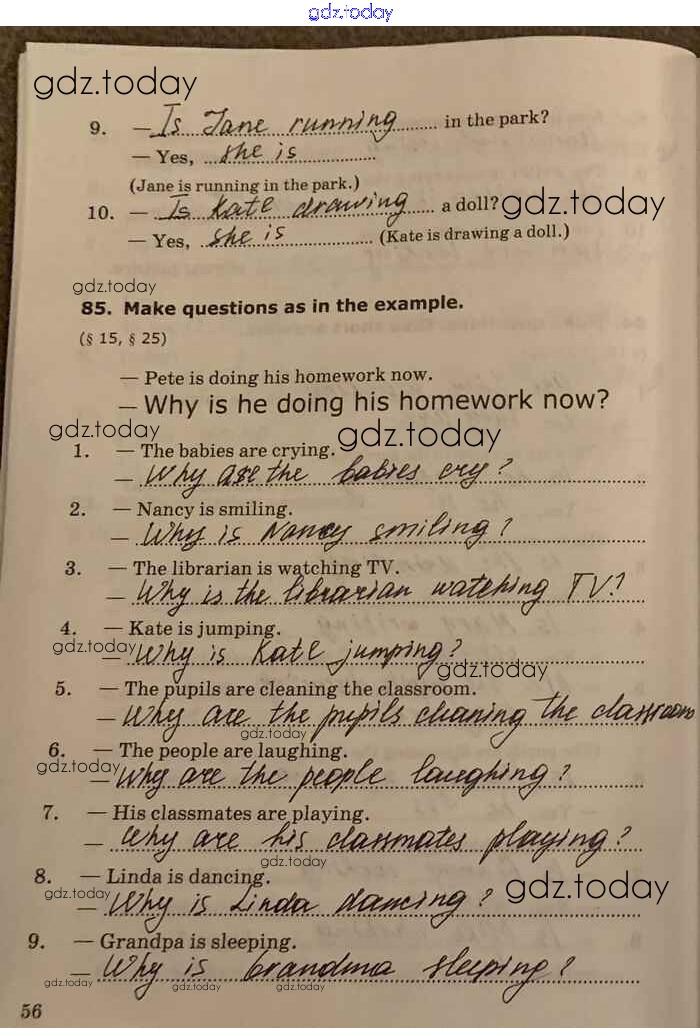 gdz.today
gdz.today
9. – Is Jane running in the park?
– Yes, she is
(Jane is running in the park.)
10. – Is Kate drawing a doll? gdz.today
– Yes, she is (Kate is drawing a doll.)
gdz.today
85. Make questions as in the example.
(§ 15, § 25)
– Pete is doing his homework now.
– Why is he doing his homework now?
gdz.today gdz.today
1. – The babies are crying.
– Why are the babies cry?
2. – Nancy is smiling.
– Why is Nancy smiling?
3. – The librarian is watching TV.
– Why is the librarian watching TV?
4. – Kate is jumping.
gdz.today
– Why is Kate jumping?
gdz.today
5. – The pupils are cleaning the classroom.
– Why are the pupils cleaning the classroom
gdz.today
6. – The people are laughing.
gdz.today
– Why are the people laughing?
7. – His classmates are playing.
– Why are his classmates playing?
gdz.today
8. – Linda is dancing.
gdz.today gdz.today
– Why is Linda dancing?
9. – Grandpa is sleeping.
– Why is brandma sleeping?
gdz.today gdz.today gdz.today
56